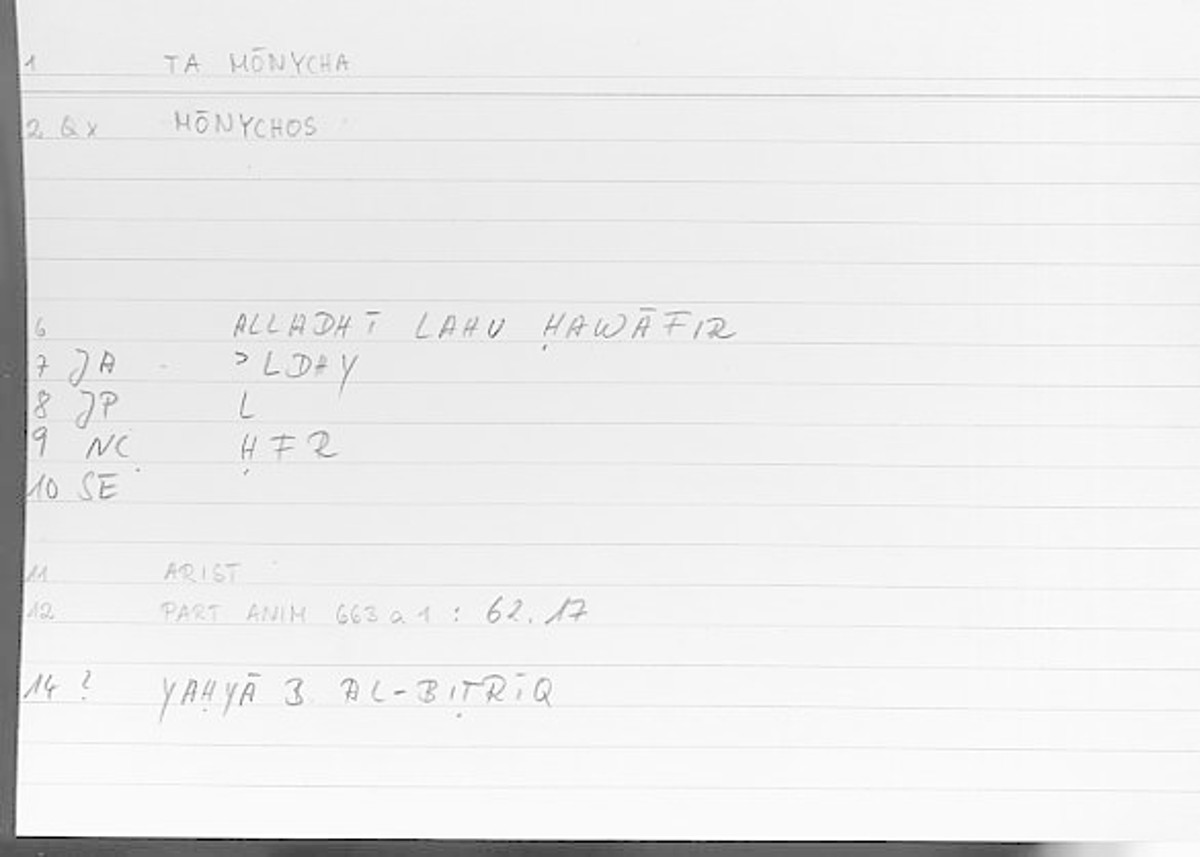 1 TA MŌNYCHA
2 Qx MŌNYCHOS
6 ALLADHĪ LAHU ḤAWĀFIR
7 JA ʾLDHY
8 JP L
9 NC ḤFR
10 SE
11 ARIST
12 PART ANIM 663a1 : 62.17
14 ? YAḤYĀ B. AL-BIṬRĪQ